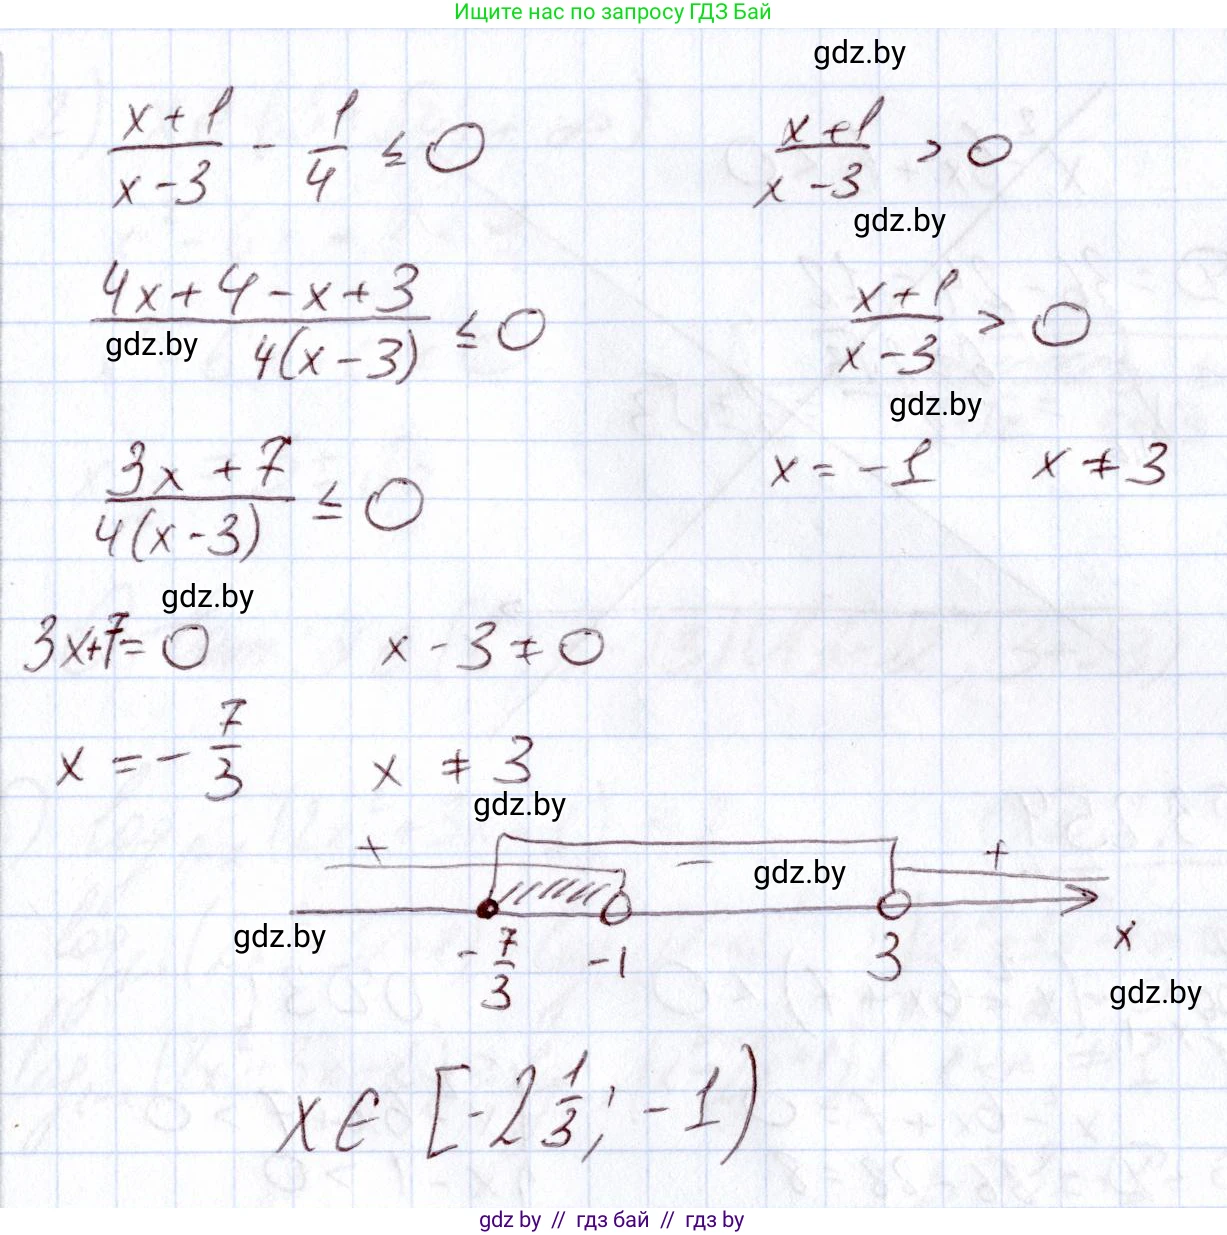 Ищите нас по запросу ГДЗ Бай
gdz.by
(x+1)/(x-3) - 1/4 ≤ 0
(x+1)/(x-3) > 0
gdz.by
(4x+4-x+3)/(4(x-3)) ≤ 0
(x+1)/(x-3) > 0
gdz.by
gdz.by
(3x+7)/(4(x-3)) ≤ 0
x = -1 x ≠ 3
gdz.by
3x+7=0 x-3≠0
x = -7/3 x ≠ 3
gdz.by
+ - +
gdz.by
gdz.by
-7/3 -1 3 x
gdz.by
x ∈ [-2 1/3; -1)
gdz by // гдз бай // гдз by